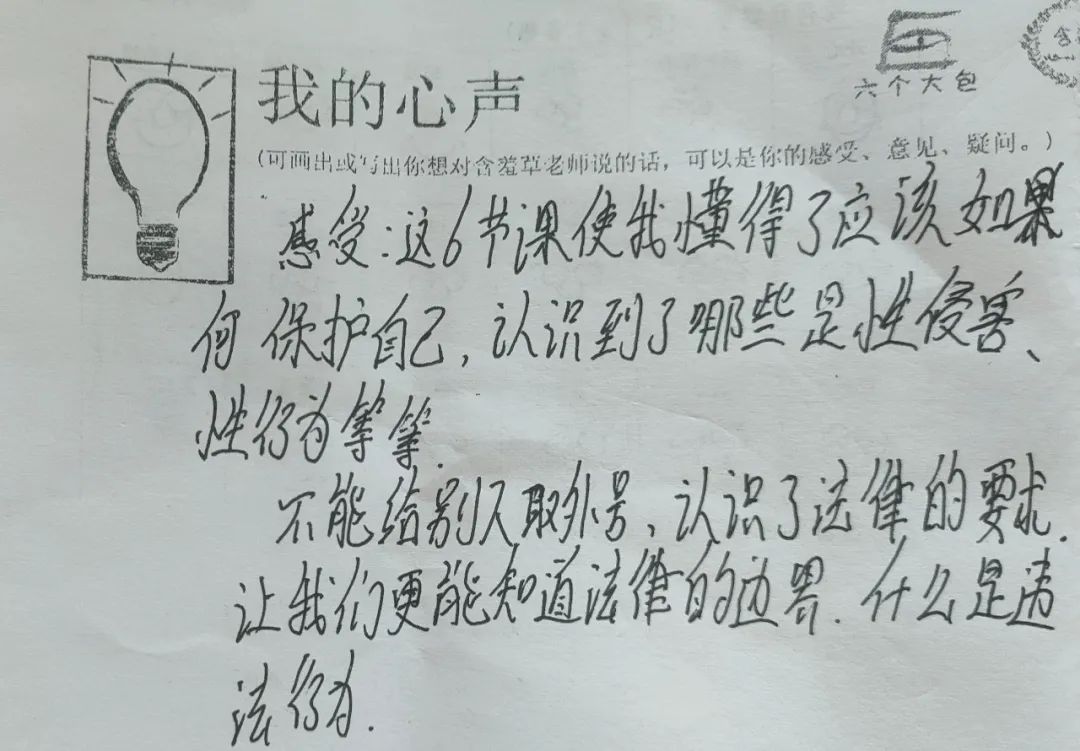 六个大包
我的心声
(可画出或写出你想对含羞草老师说的话，可以是你的感受、意见、疑问。)
感受:这6节课使我懂得了应该如果
何保护自己,认识到了哪些是性侵害、
性行为等等.
不能给别人取外号、认识了法律的要求.
让我们更能知道法律的边界.什么是违
法行为.